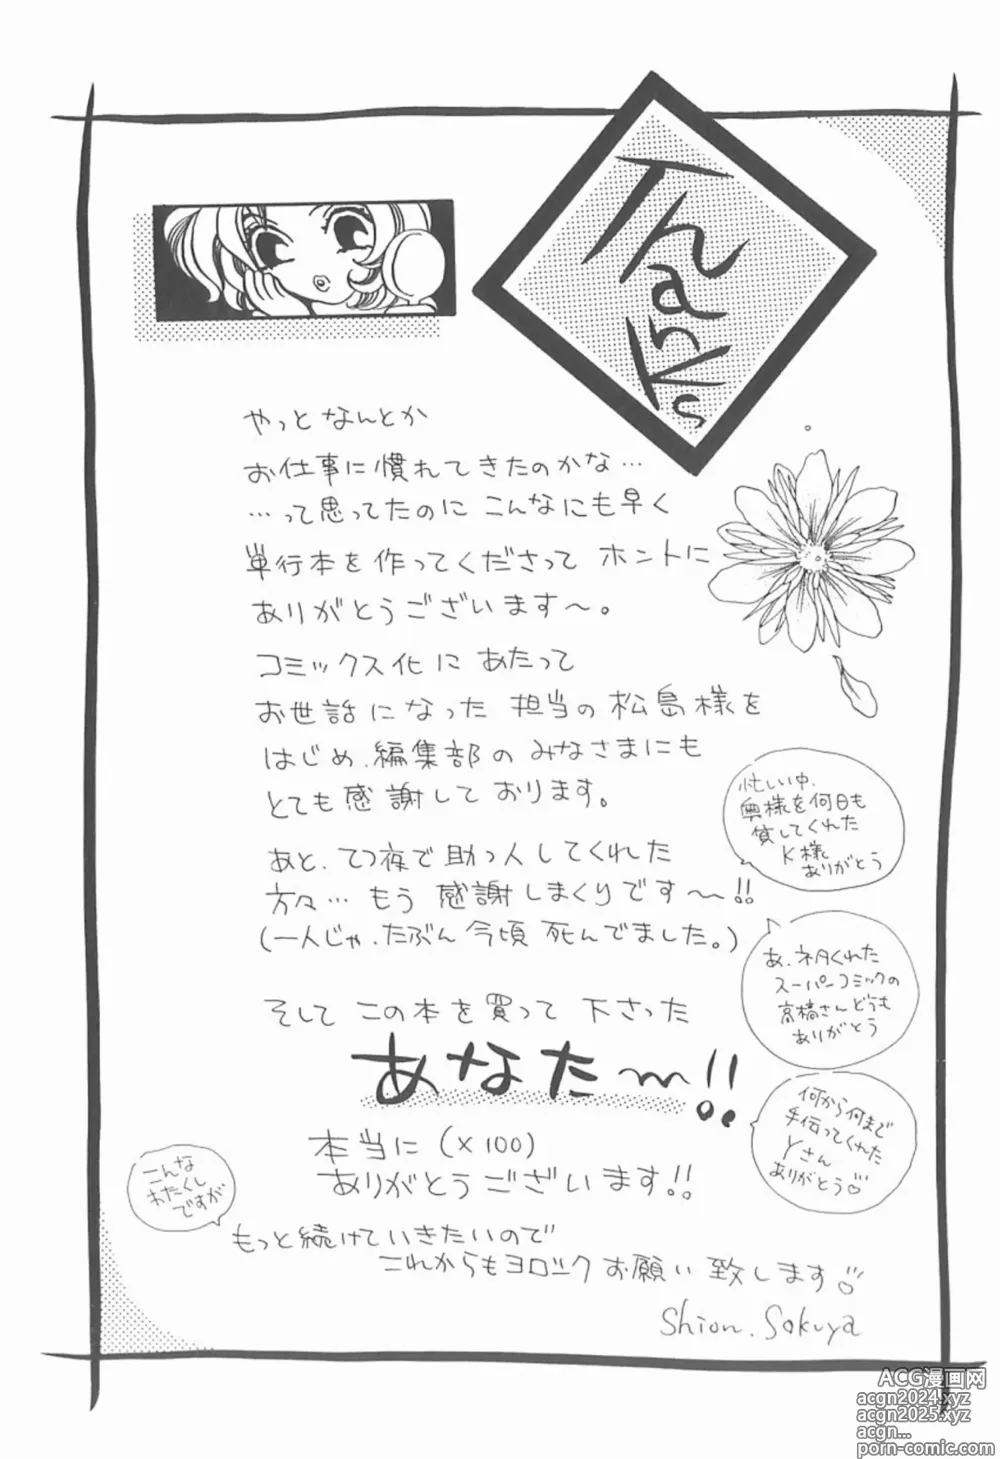 Thanks
やっとなんとか
お仕事に慣れてきたのかな…
…って思ってたのに こんなにも早く
単行本を作ってくださって ホントに
ありがとうございます〜。
コミックス化に あたって
お世話になった 担当の松島様を
はじめ、編集部の みなさまにも
とても感謝して おります。
あと、てつ夜で助っ人してくれた
方々… もう 感謝しまくりです〜!!
(一人じゃ、たぶん今頃 死んでました。)
忙しい中、
奥様を何日も
貸してくれた
K様
ありがとう
あ、ネタくれた
スーパーコミックの
高橋さんどうも
ありがとう
そして この本を買って 下さった
あなた〜!!
何から何まで
手伝ってくれた
Yさん
ありがとう♡
本当に (×100)
ありがとうございます!!
こんな
わたくし
ですが
もっと続けていきたいので
これからもヨロシク お願い 致します♡
Shion. Sakuya
ACG漫画网
acgn2024.xyz
acgn2025.xyz
acgn...
porn-comic.com